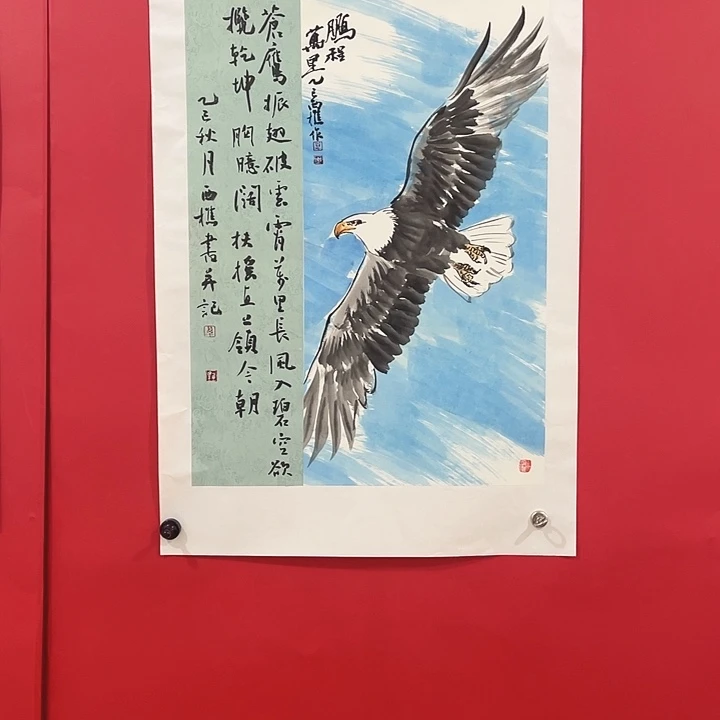 鵬程
萬里乙巳西樵作
蒼鷹振翅破雲霄萬里長風入碧空欲
攬乾坤胸臆闊扶搖直上領今朝
乙巳秋月西樵書并記